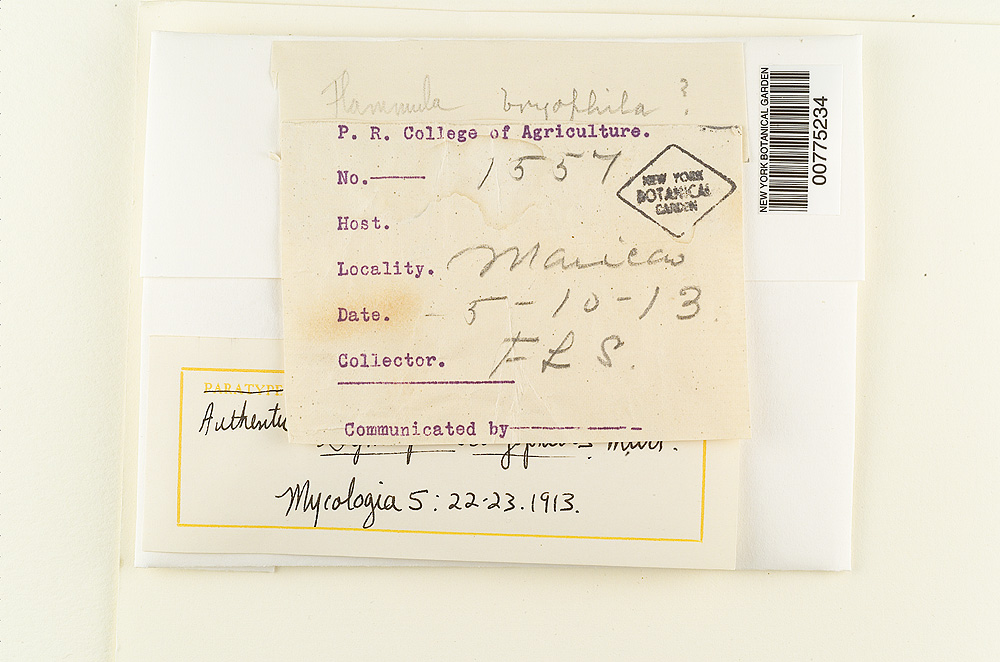 Flammula bryophila ?
P. R. College of Agriculture.
No. 1557
NEW YORK
BOTANICAL
GARDEN
Host.
Locality. Maricao
Date. 5-10-13.
Collector. FLS.
Communicated by
NEW YORK BOTANICAL GARDEN
00775234
PARATYPE
Murr.
Mycologia 5: 22-23. 1913.